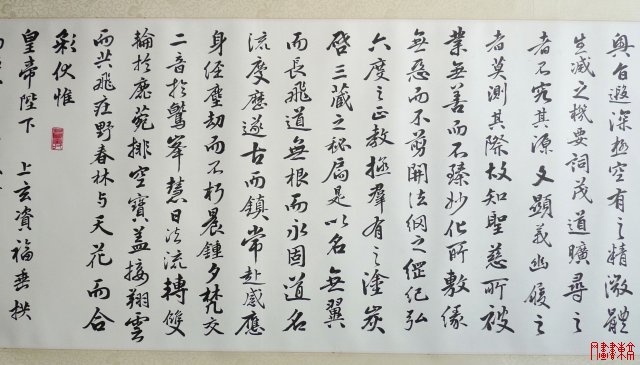 奧旨遐深極空有之精微體
生滅之機要詞茂道曠尋之
者不究其源文顯義幽履之
者莫測其際故知聖慈所被
業無善而不臻妙化所敷緣
無惡而不剪開法網之綱紀弘
六度之正教拯羣有之塗炭
啓三藏之秘扃是以名無翼
而長飛道無根而永固道名
流慶歷遂古而鎮常赴感應
身經塵劫而不朽晨鍾夕梵交
二音於鷲峯慧日法流轉雙
輪於鹿菀排空寶蓋接翔雲
而共飛莊野春林与天花而合
彩伏惟
皇帝陛下上玄資福垂拱